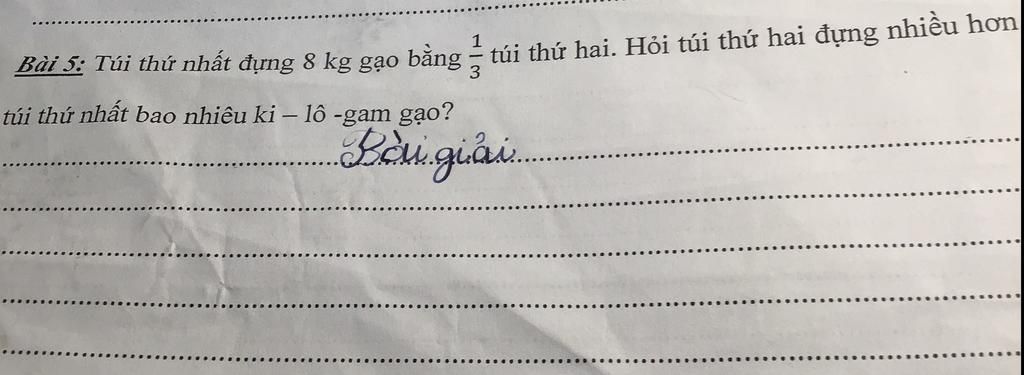 Bài 5: Túi thứ nhất đựng 8 kg gạo bằng 1/3 túi thứ hai. Hỏi túi thứ hai đựng nhiều hơn
túi thứ nhất bao nhiêu ki – lô -gam gạo?
Bài giải